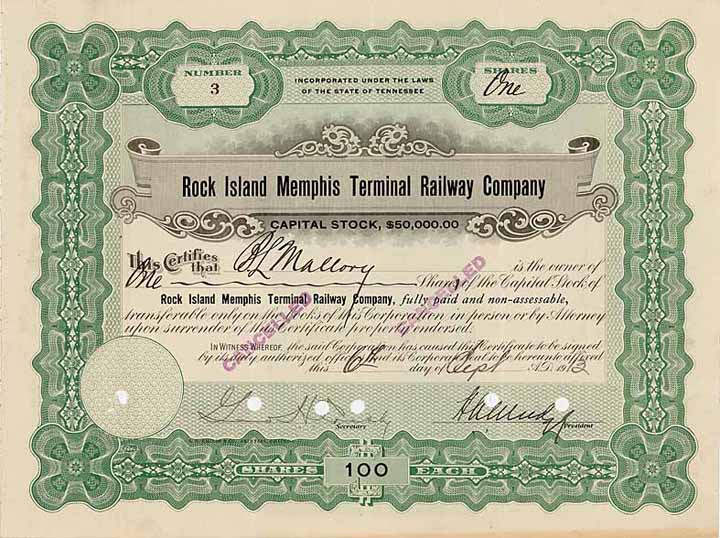 NUMBER
3
INCORPORATED UNDER THE LAWS
OF THE STATE OF TENNESSEE
SHARES
One
Rock Island Memphis Terminal Railway Company
CAPITAL STOCK, $50,000.00
This Certifies that B L Mallory is the owner of
One Shares of the Capital Stock of
Rock Island Memphis Terminal Railway Company, fully paid and non-assessable,
transferable only on the books of this Corporation in person or by Attorney
upon surrender of this Certificate properly endorsed.
CANCELLED
CANCELLED
IN WITNESS WHEREOF, the said Corporation has caused this Certificate to be signed
by its duly authorized officers and its Corporate Seal to be hereunto affixed
this 6th day of Sept A.D. 1912
Secretary
President
SHARES 100 EACH